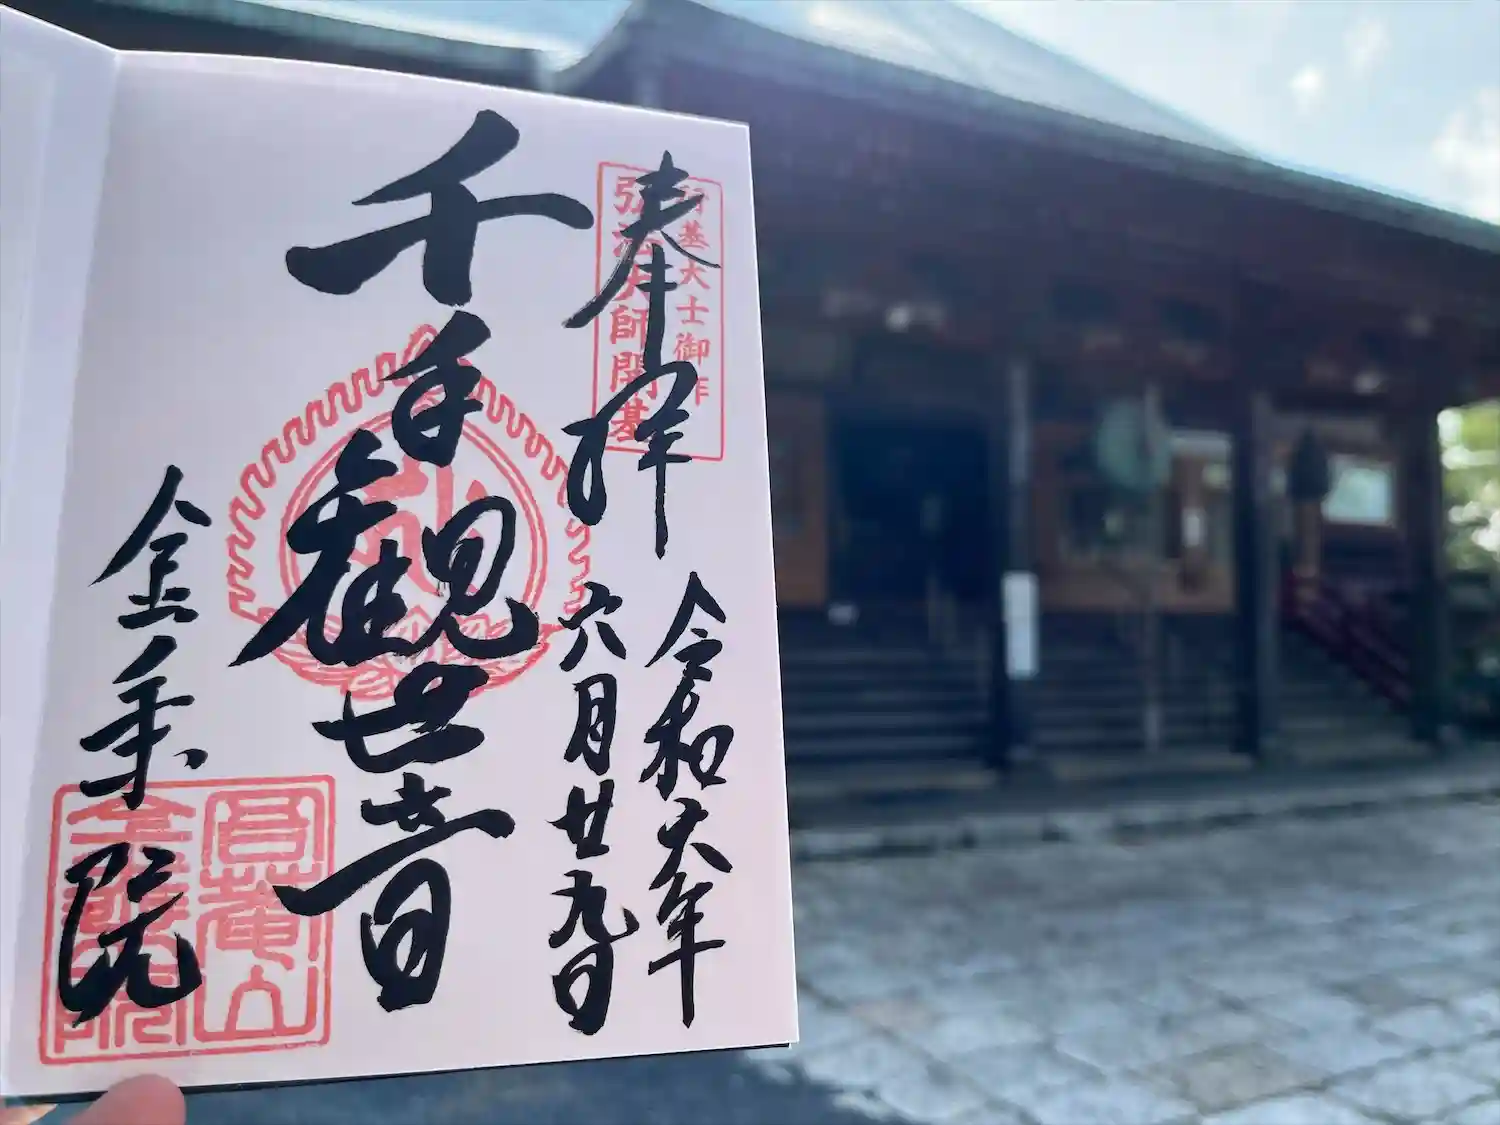 行基大士御作
弘法大師開基
奉拝
令和六年
六月廿九日
千手観世音
金乗院